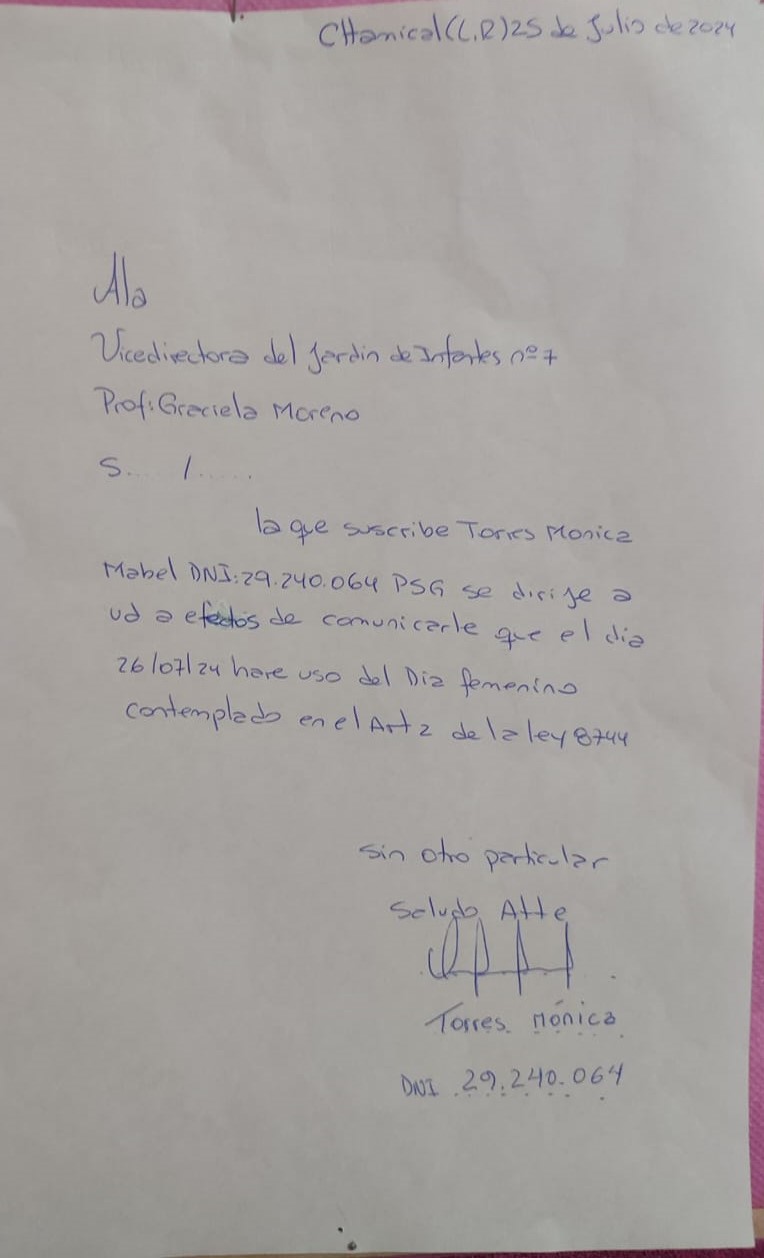 CHamical (L.R) 25 de Julio de 2024
A la
Vicedirectora del Jardin de Infantes nº 7
Prof: Graciela Moreno
S.... /......
la que suscribe Torres Monica
Mabel DNI: 29.240.064 PSG se dirije a
ud a efectos de comunicarle que el dia
26/07/24 hare uso del Dia femenino
contemplado en el Art 2 de la ley 8744
Sin otro particular
Saludo Atte
Torres Mónica
DNI 29.240.064